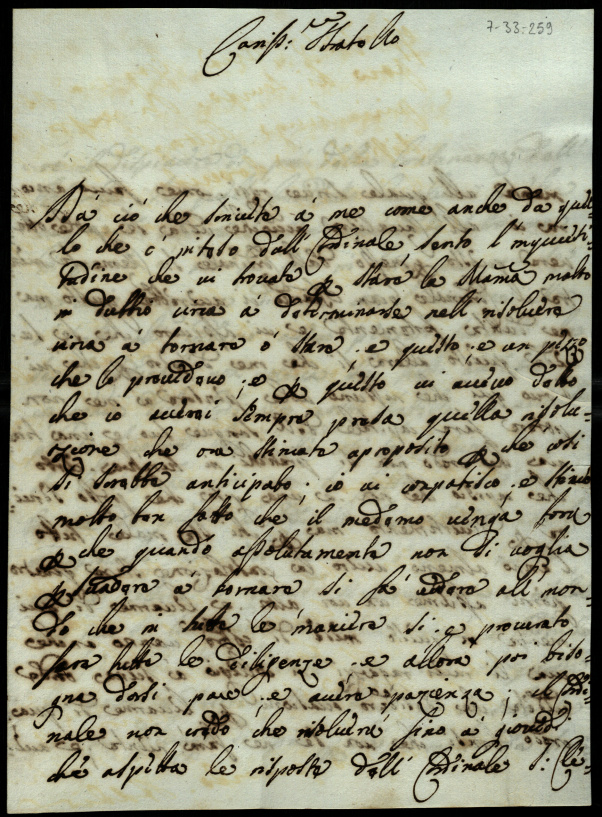 7-33-259
Cariss:mo Fratello
Da ciò che scriuete à me come anche da quel
lo che è
dall' Cardinale, sento l'inquieti-
tudine che ui trouate p stare la Mamà molto
in dubbio uerso à determinarse nell' risoluere
uerso à tornare ò stare. e questo. e un pezzo
che lo preuedeuo; e p questo ui aueuo detto
che io auerei sempre presa quella risolu-
zione che ora stimate aproposito p che così
si sarebbe anticipato. io ui conpatisco. e stimo
molto ben fatto che il medemo uenga fora
p chè quando assolutamente non si uoglia
p suadere à tornare si fà uedere all' mon-
do che in tutte le maniere si è procurato
fare tutte le diligenze. e allora poi biso-
gna darsi pace. e auere pazienza; il Cardi-
nale non credo che risoluerà sino à giouedì
chè aspetta le risposte dell' Cardinale S: Cle-